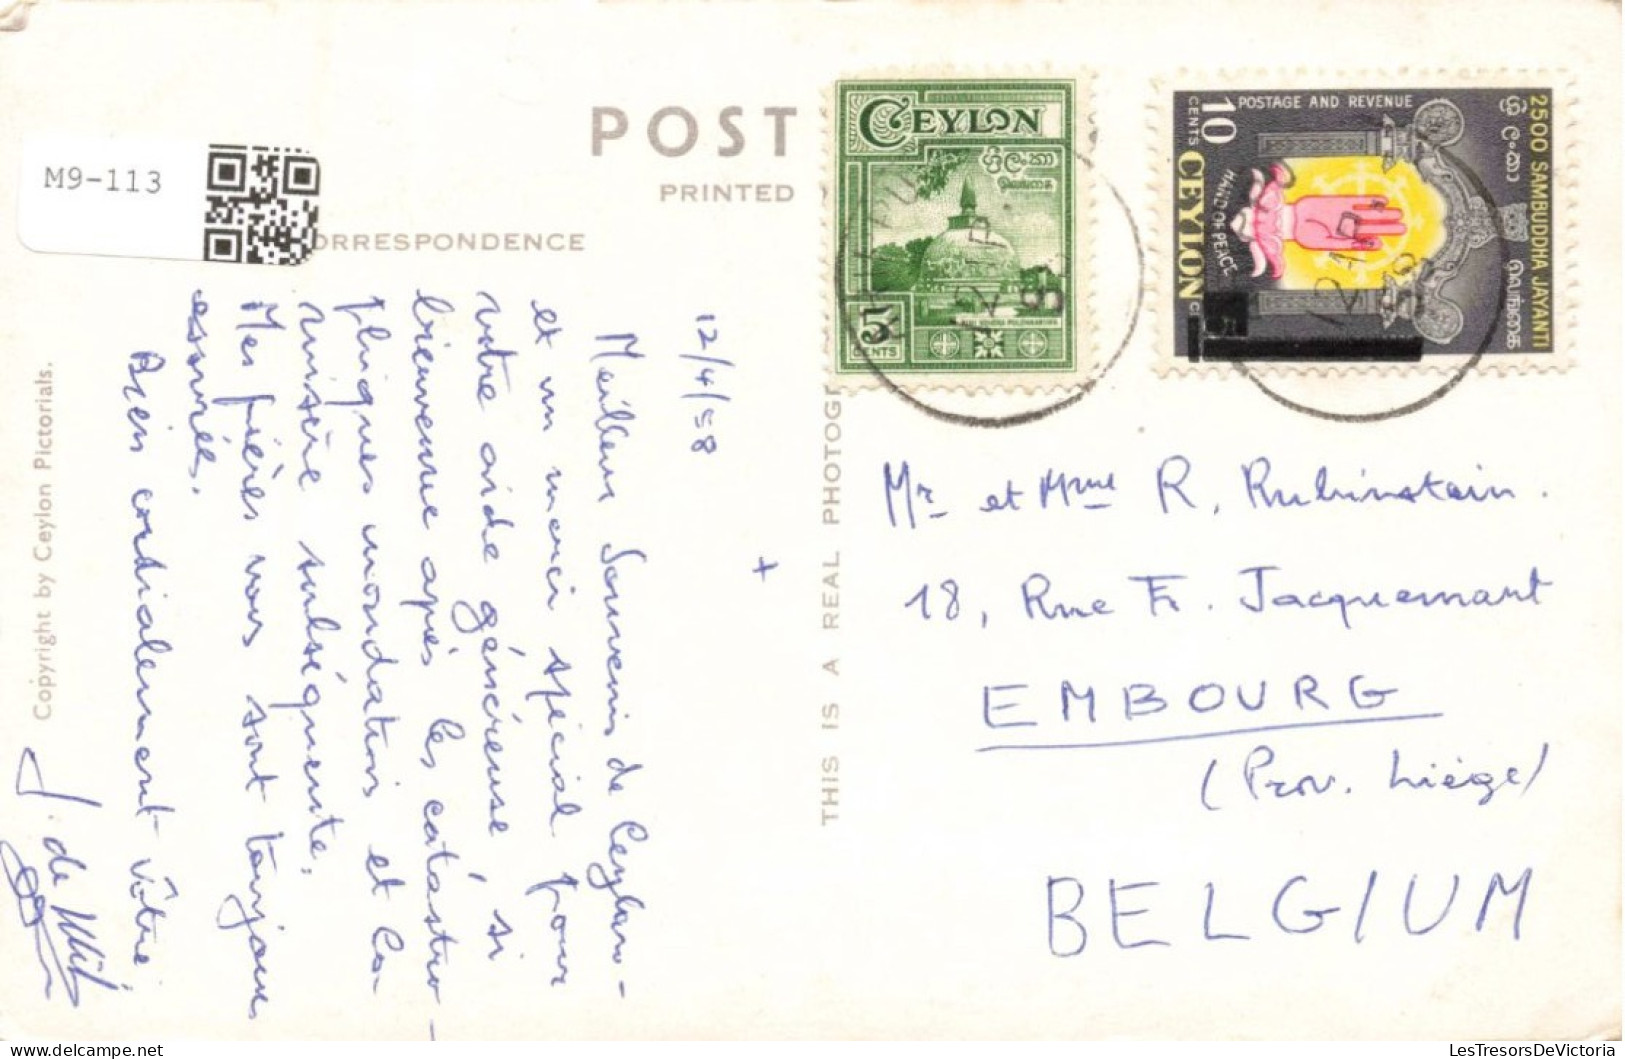 M9-113
POST
PRINTED
ORRESPONDENCE
Copyright by Ceylon Pictorials.
THIS IS A REAL PHOTOGR
CEYLON
ශ්‍රී ලංකා
இலங்கை
5
CENTS
2500 SAMBUDDHA JAYANTI
ශ්‍රී ලංකා
இலங்கை
POSTAGE AND REVENUE
10
CENTS
CEYLON
HAND OF PEACE
12/4/58
+
Meilleurs Souvenirs de Ceylan -
et un merci spécial pour
votre aide généreuse, si
bienvenue après les catastro-
phiques inondations et la
misère subséquente.
Mes prières vous sont toujours
assurées.
Bien cordialement vôtre,
Mr et Mme R. Rubinstein.
18, Rue Fr. Jacquemart
EMBOURG
(Prov. Liége)
BELGIUM
LesTresorsDeVictoria